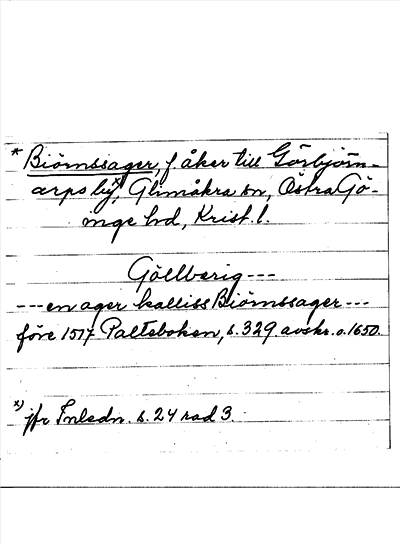 * Biörnssager, f åker till Görbjörn-
arps by x), Glimåkra sn, Östra Gö-
inge hd, Krist. l.
Göllberig ---
--- en ager kalliss Biörnssager ---
före 1517 Palteboken, s. 329 avskr. o. 1650.
x) jfr Inledn. s. 24 rad 3.